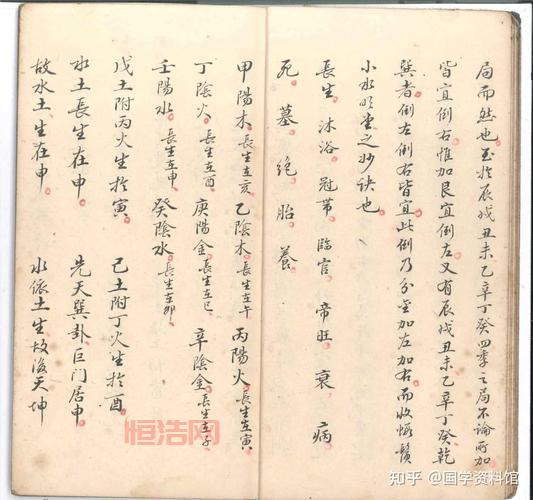 局而然也至於辰戌丑未乙辛丁癸四季之局不論所加
皆宜倒右惟加艮宜倒左又有辰戌丑未乙辛丁癸乾
巽者倒左倒右皆宜此倒乃分金加左加右而收鬚
小水明堂之妙訣也
長生 沐浴 冠帶 臨官 帝旺 衰 病
死 墓 絕 胎 養
甲陽木長生在亥 乙陰木長生在午 丙陽火長生在寅
丁陰火長生在酉 庚陽金長生在巳 辛陰金長生在子
壬陽水長生在申 癸陰水長生在卯
戊土附丙火生於寅 己土附丁火生於酉
水土長生在申 先天巽卦巨门居申
故水土生在申 水依土生故後天坤
恒浩网
知乎 @国学资料馆